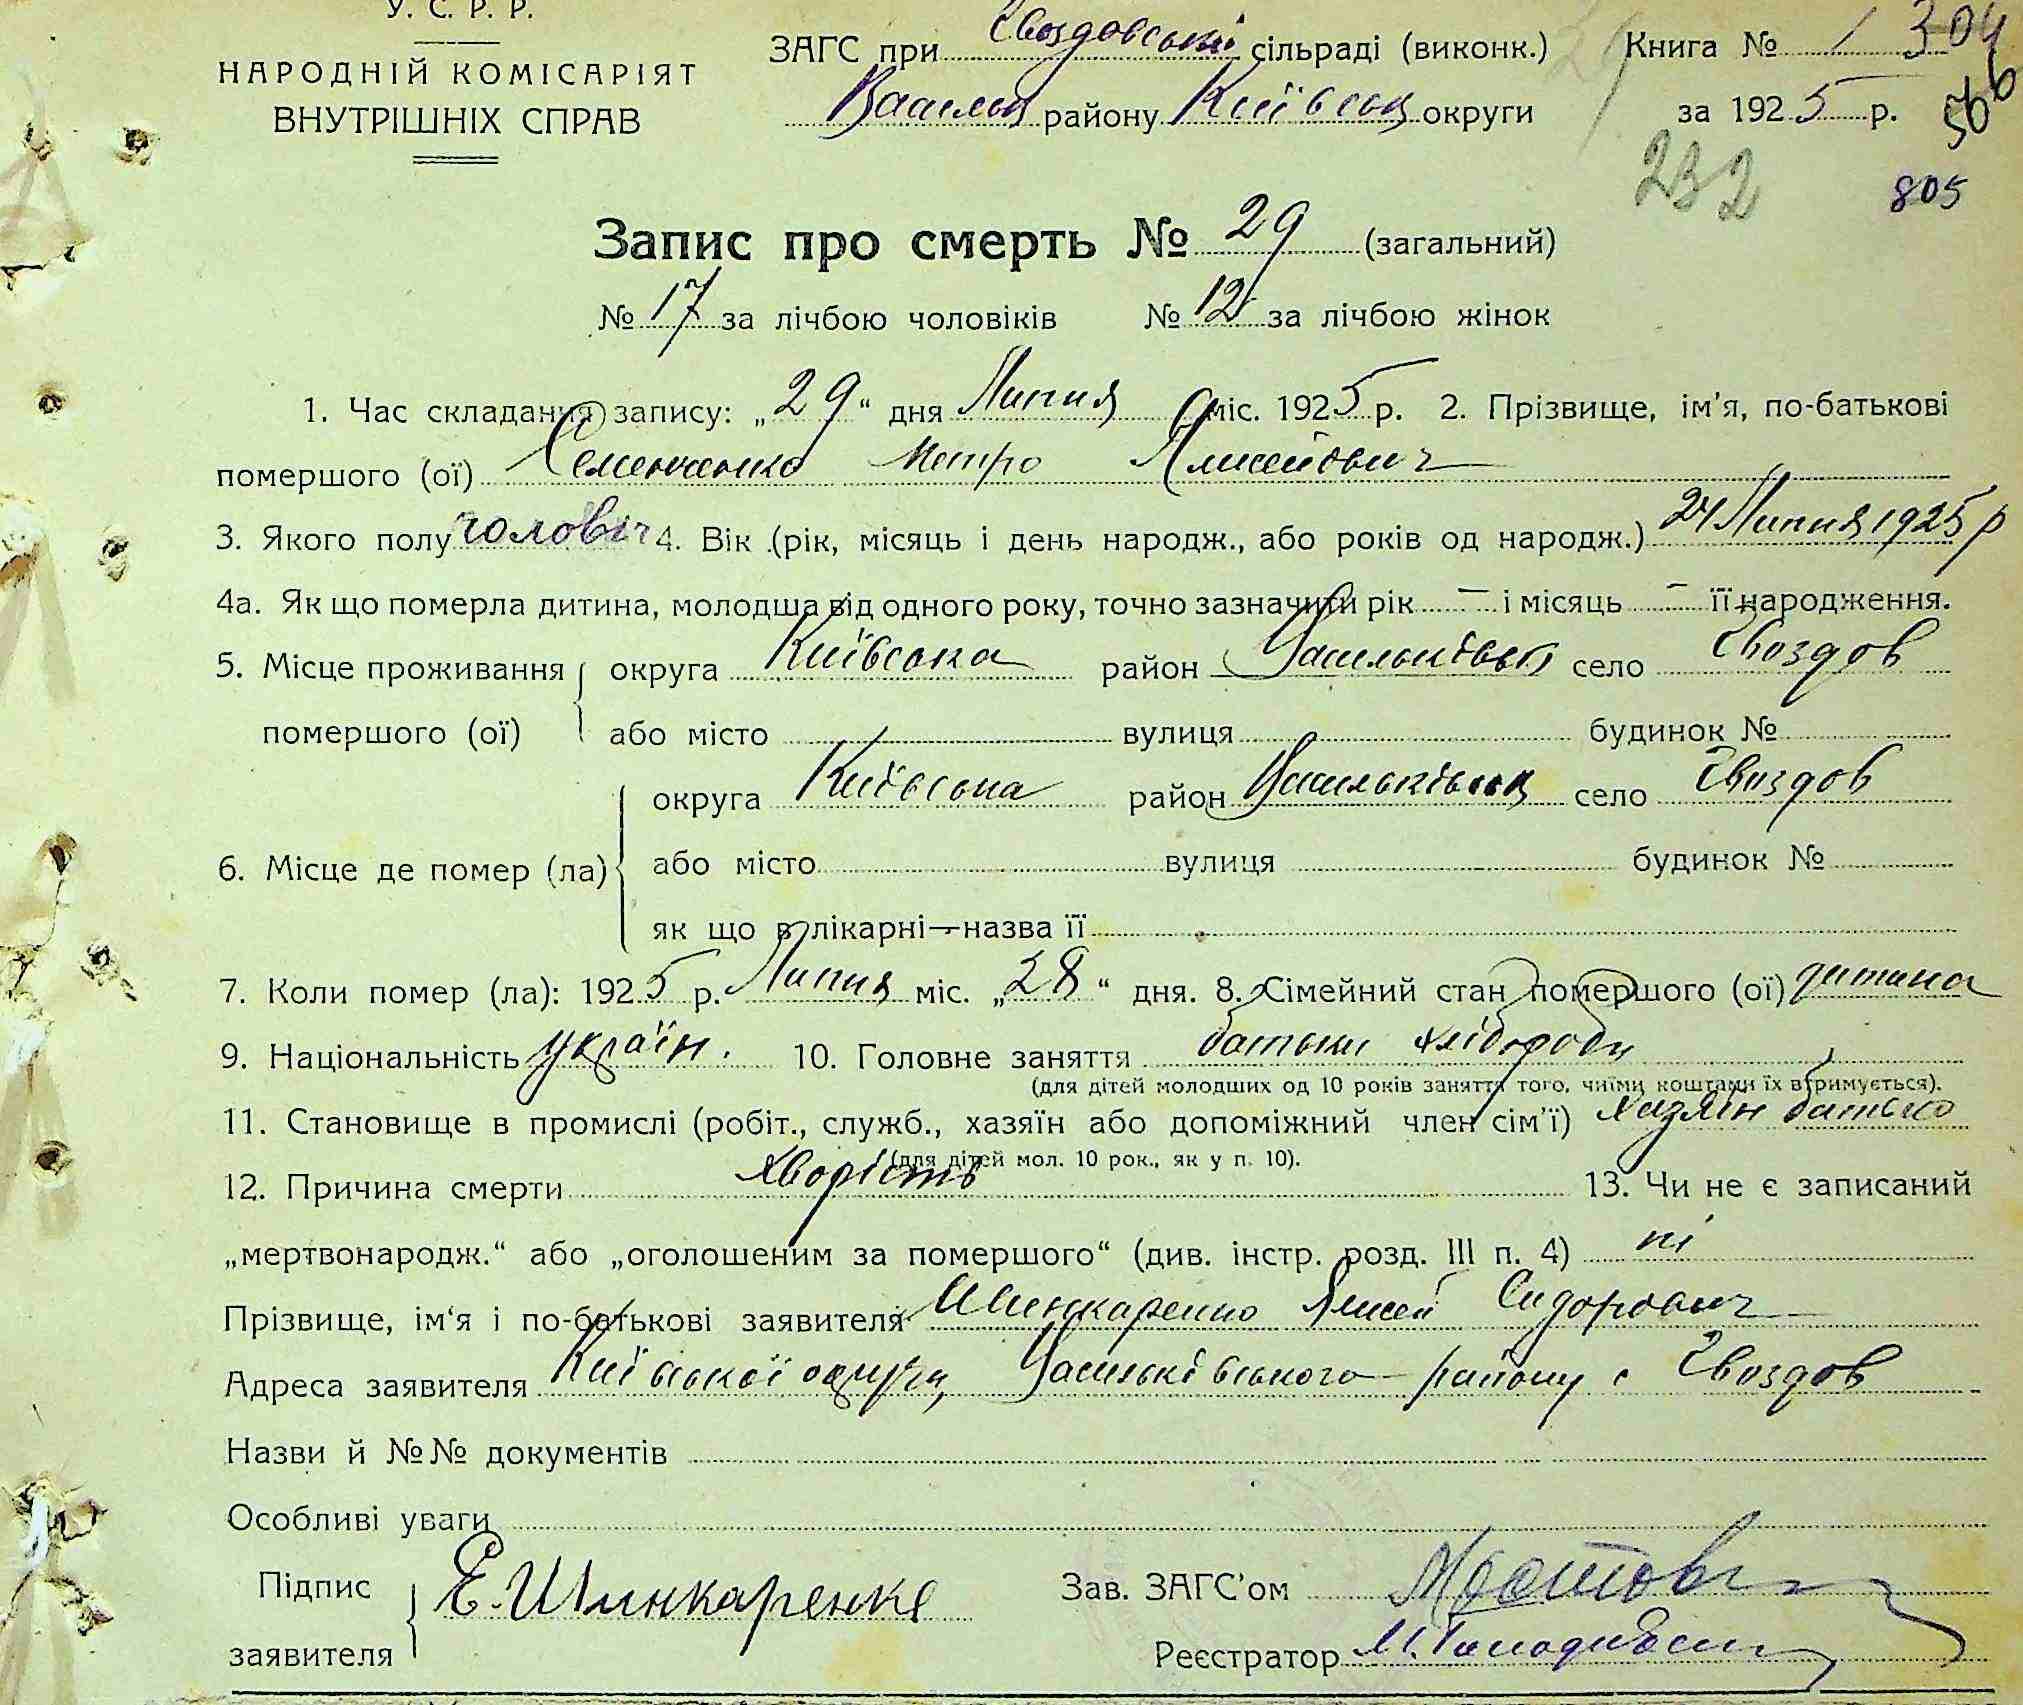 У. С. Р. Р.
НАРОДНІЙ КОМІСАРІЯТ
ВНУТРІШНІХ СПРАВ
ЗАГС при Гвоздовській сільраді (виконк.)
Васильк району Київськ округи
Книга № 1 304
за 1925 р. 566
232 805
Запис про смерть № 29 (загальний)
№ 17 за лічбою чоловіків № 12 за лічбою жінок
1. Час складання запису: „29“ дня Липня міс. 1925 р. 2. Прізвище, ім’я, по-батькові
помершого (ої) Петро
3. Якого полу чоловіч 4. Вік (рік, місяць і день народж., або років од народж.) 24 Липня 1925 р
4а. Як що померла дитина, молодша від одного року, точно зазначити рік — і місяць — її народження.
5. Місце проживання округа Київська район Васильківськ село Гвоздов
помершого (ої) або місто вулиця будинок №
округа Київська район Васильківськ село Гвоздов
6. Місце де помер (ла) або місто вулиця будинок №
як що в лікарні—назва її
7. Коли помер (ла): 1925 р. Липня міс. „28“ дня. 8. Сімейний стан помершого (ої) дитина
9. Національність україн. 10. Головне заняття батьки хлібороби
(для дітей молодших од 10 років заняття того, чиїми коштами їх втримується).
11. Становище в промислі (робіт., служб., хазяїн або допоміжний член сім’ї) хазяїн батько
(для дітей мол. 10 рок., як у п. 10).
12. Причина смерти хворість 13. Чи не є записаний
„мертвонародж.“ або „оголошеним за помершого“ (див. інстр. розд. III п. 4) ні
Прізвище, ім‘я і по-батькові заявителя Шинкаренко Ялисей Сидорович
Адреса заявителя Київської округи, Васильківського району с Гвоздов
Назви й №№ документів
Особливі уваги
Підпис
заявителя Е. Шинкаренко
Зав. ЗАГС’ом
Реєстратор